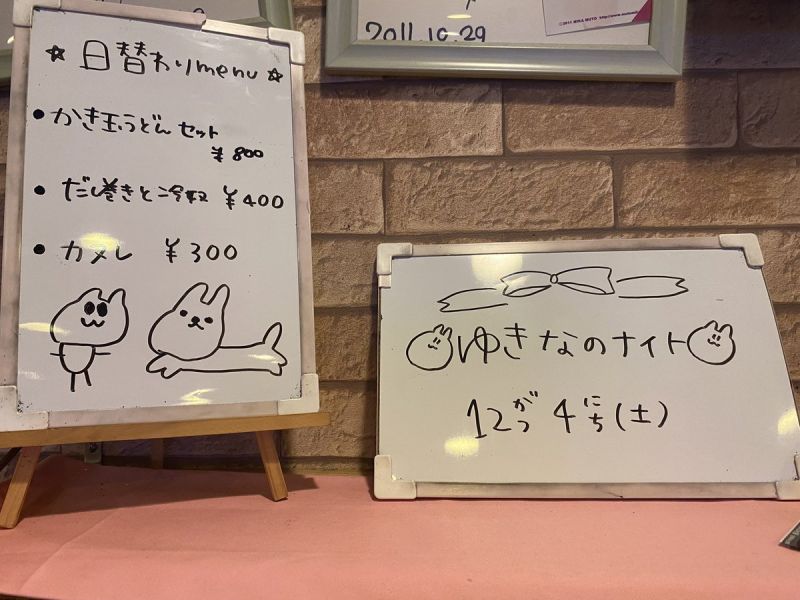 ☆日替わりmenu☆
• かき玉うどんセット
¥800
• だし巻きと冷奴 ¥400
• カヌレ ¥300
2011.10.29
ゆきなのナイト
12がつ4にち(土)